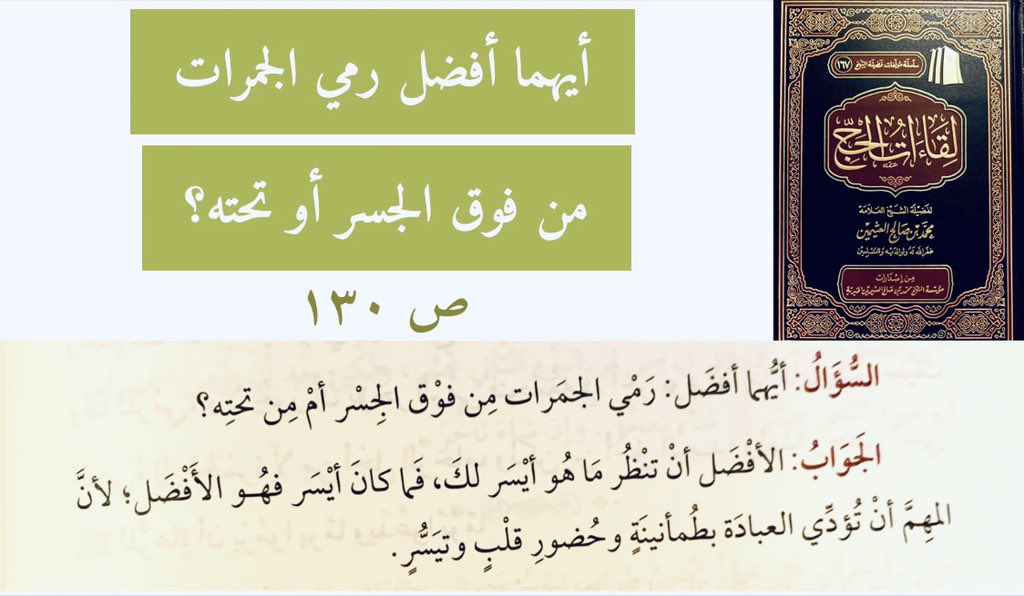 أيهما أفضل رمي الجمرات
من فوق الجسر أو تحته؟
ص ١٣٠
سلسلة مؤلفات فضيلة الشيخ ١٦٧
لقاءات الحج
لفضيلة الشيخ العلامة
محمد بن صالح العثيمين
غفر الله له ولوالديه وللمسلمين
من إصدارات
مؤسسة الشيخ محمد بن صالح العثيمين الخيرية
السُّؤَالُ: أيُّهما أفضَل: رَمْي الجمَرات مِن فوْق الجِسْر أمْ مِن تحتِه؟
الجَوَابُ: الأفْضَل أنْ تنْظُر مَا هُو أيْسَر لكَ، فَما كانَ أيْسَر فهُو الأَفْضَل؛ لأنَّ
المهِمَّ أنْ تُؤدِّي العبادَة بطُمأنينَةٍ وحُضورِ قلْبٍ وتيَسُّرٍ.